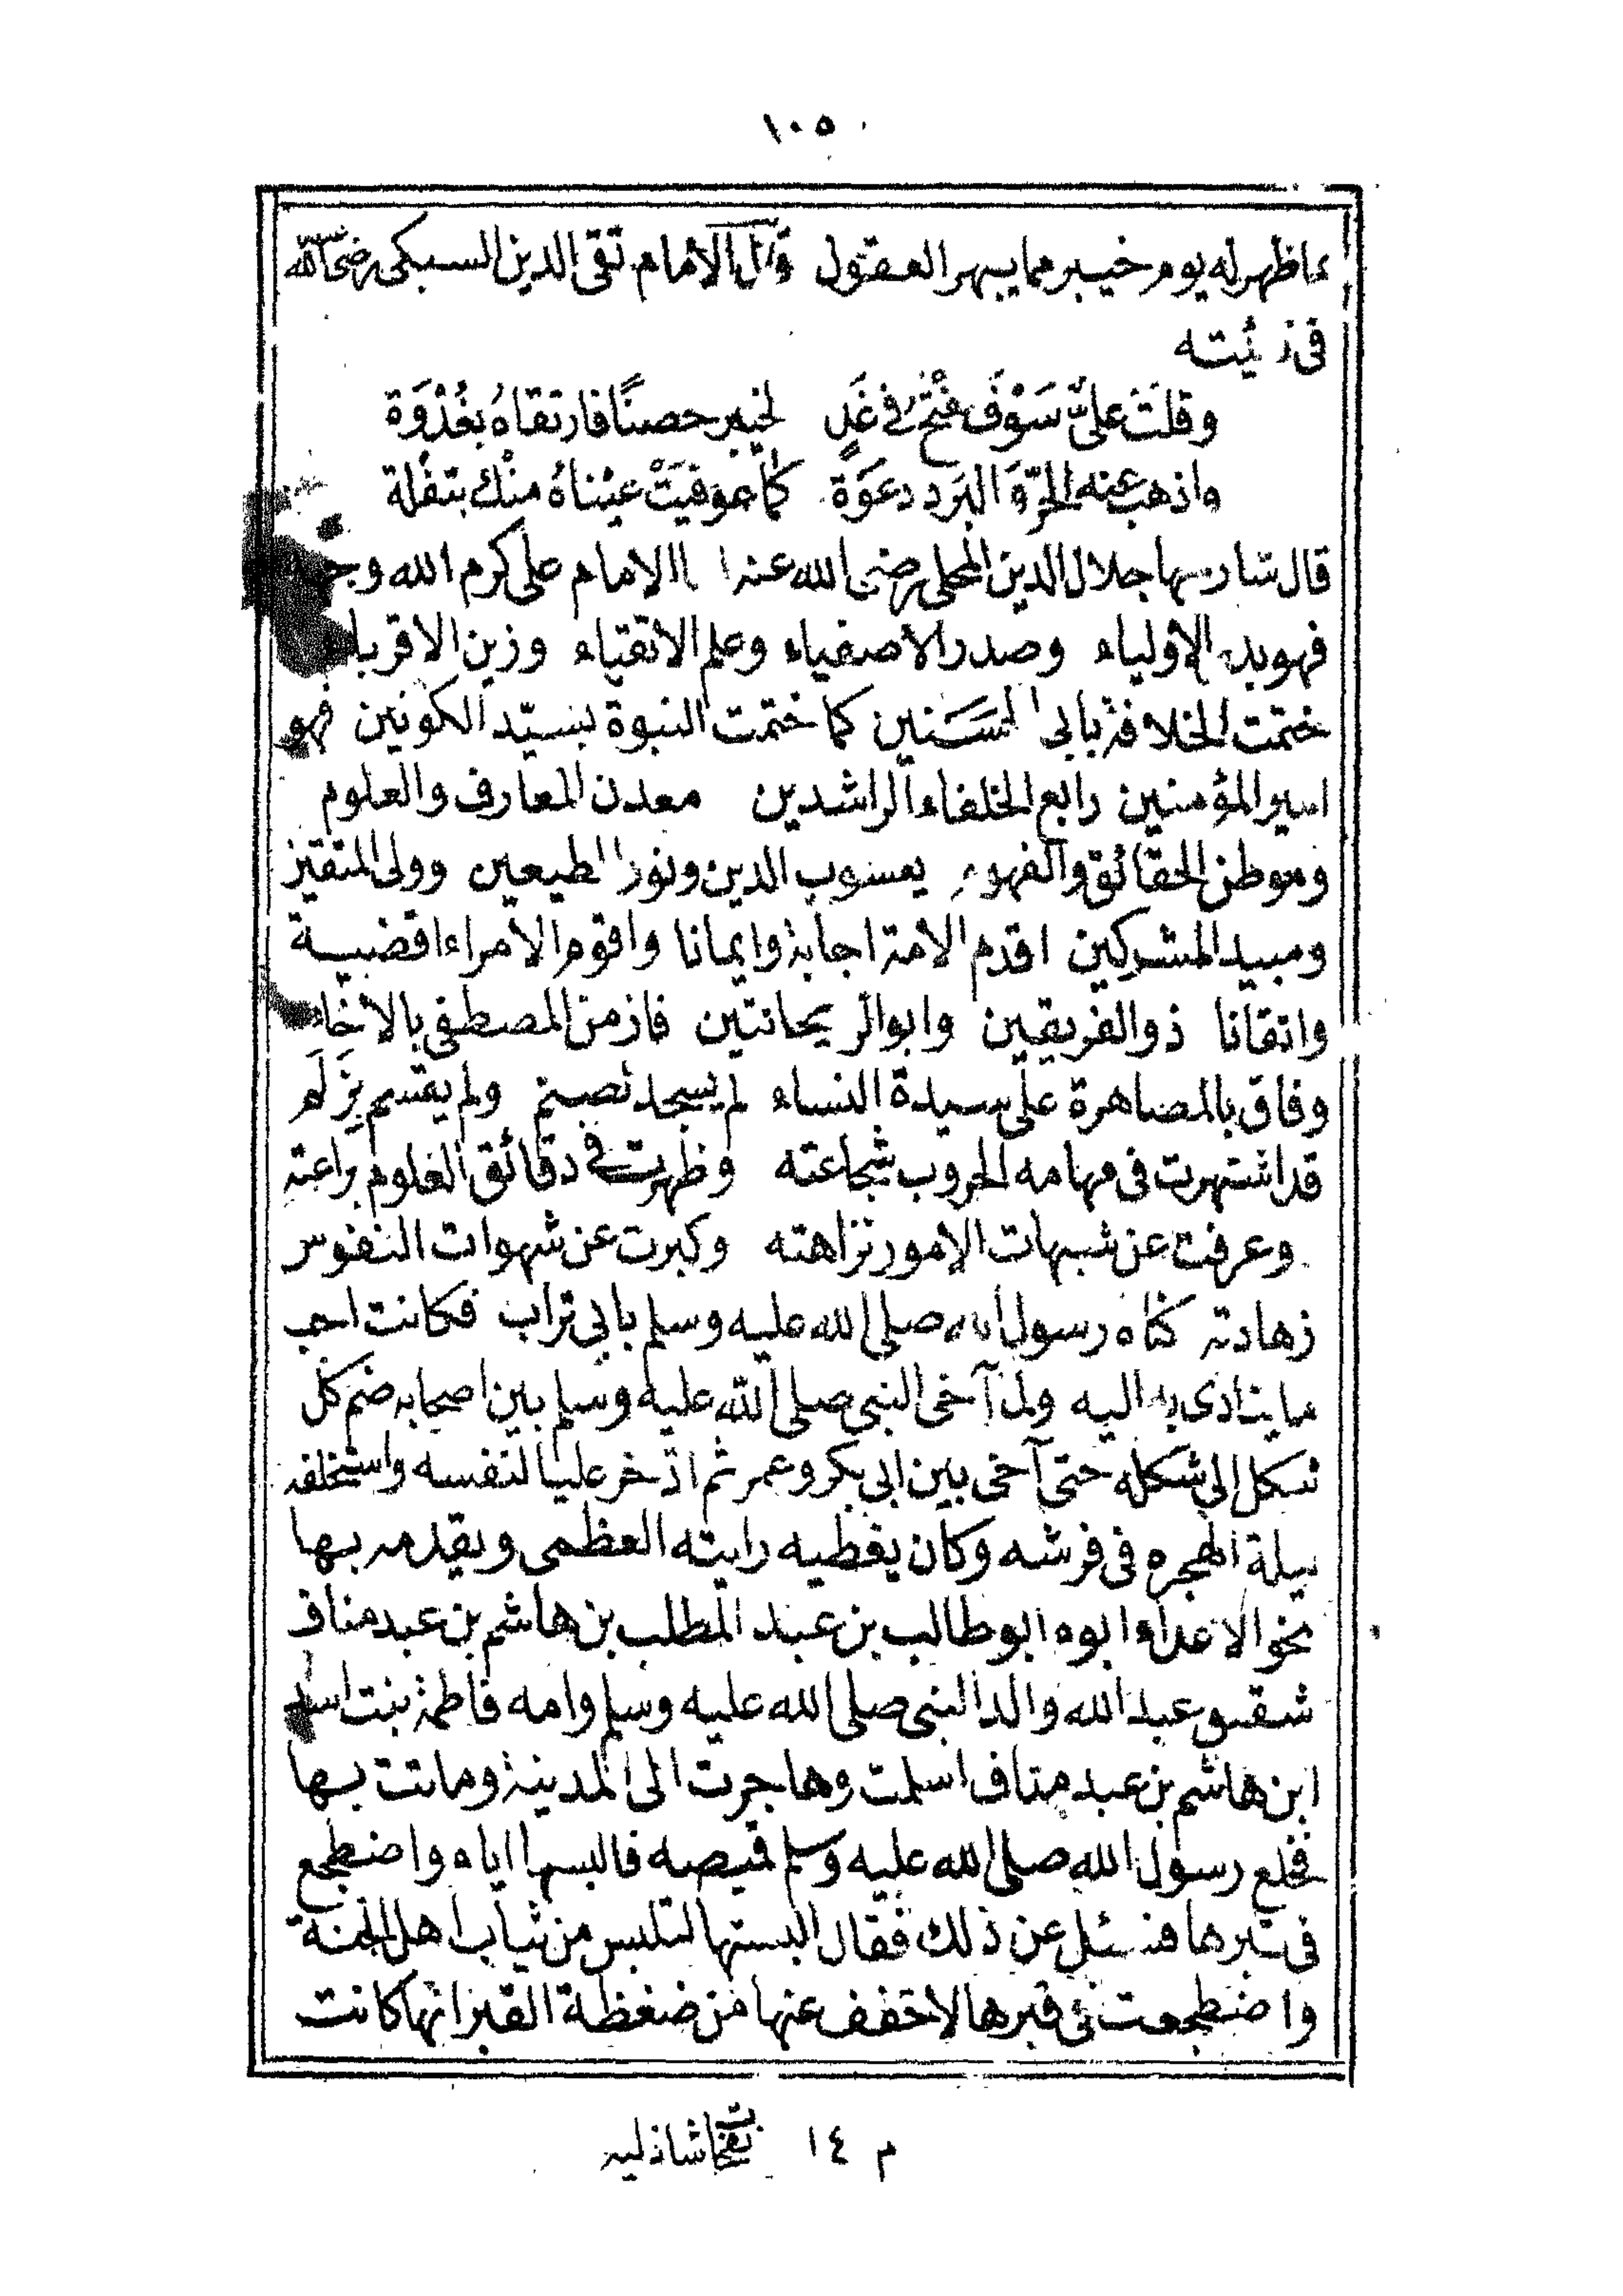 ١٠٥
ما ظهر له يوم خيبر مما يبهر العقول قال الامام تقى الدين السبكى رضى الله
فى
وقلت علىّ سَوْفَ فتح فى غَدٍ لخيبر حصنًا فارتقاهُ بغُدْوَة
واذهب عنه الحرّ وَالبَرد دعوَة كما عوفيَتْ عيْناهُ منْك بتفْلة
قال شارحها جلال الدين المحلى رضى الله عنه الامام على كرم الله وجهه
فهو بدر الاولياء وصدر الاصفياء وعلم الاتقياء وزين الاقرباء
ختمت الخلافة بابى الحَسَنين كما ختمت النبوة بسيّد الكونين فهو
امير المؤمنين رابع الخلفاء الراشدين معدن المعارف والعلوم
وموطن الحقائق والفهوم يعسوب الدين ونور المطيعين وولى المتقين
ومبيد المشركين اقدم الامة اجابة وايمانا واقوم الامراء اقضية
واتقانا ذو الفريقين وابو الريحانتين فاز من المصطفى بالاخاء
وفاق بالمصاهرة على سيدة النساء لم يسجد لصنم ولم يقتسم بزَلَم
قد اشتهرت فى مهامه الحروب شجاعته وظهرت فى دقائق العلوم براعته
وعرفت عن شبهات الامور نزاهته وكبرت عن شهوات النفوس
زهادته كناه رسول الله صلى الله عليه وسلم بابى تراب فكانت احب
ما ينادى به اليه ولما آخى النبى صلى الله عليه وسلم بين اصحابه ضم كل
شكل الى شكله حتى آخى بين ابى بكر وعمر ثم ادّخر عليا لنفسه واستخلفه
ليلة الهجره فى فرشه وكان يعطيه رايته العظمى ويقدمه بها
نحو الاعداء ابوه ابو طالب بن عبد المطلب بن هاشم بن عبد مناف
شقيق عبد الله والد النبى صلى الله عليه وسلم وامه فاطمة بنت اسد
ابن هاشم بن عبد مناف اسلمت وهاجرت الى المدينة وماتت بها
فخلع رسول الله صلى الله عليه وسلم قميصه فالبسها اياه واضطجع
فى قبرها فسئل عن ذلك فقال البستها لتلبس من ثياب اهل الجنة
واضطجعت فى قبرها لاخفف عنها من ضغظة القبر انها كانت
م ١٤ نفحات شاذليه